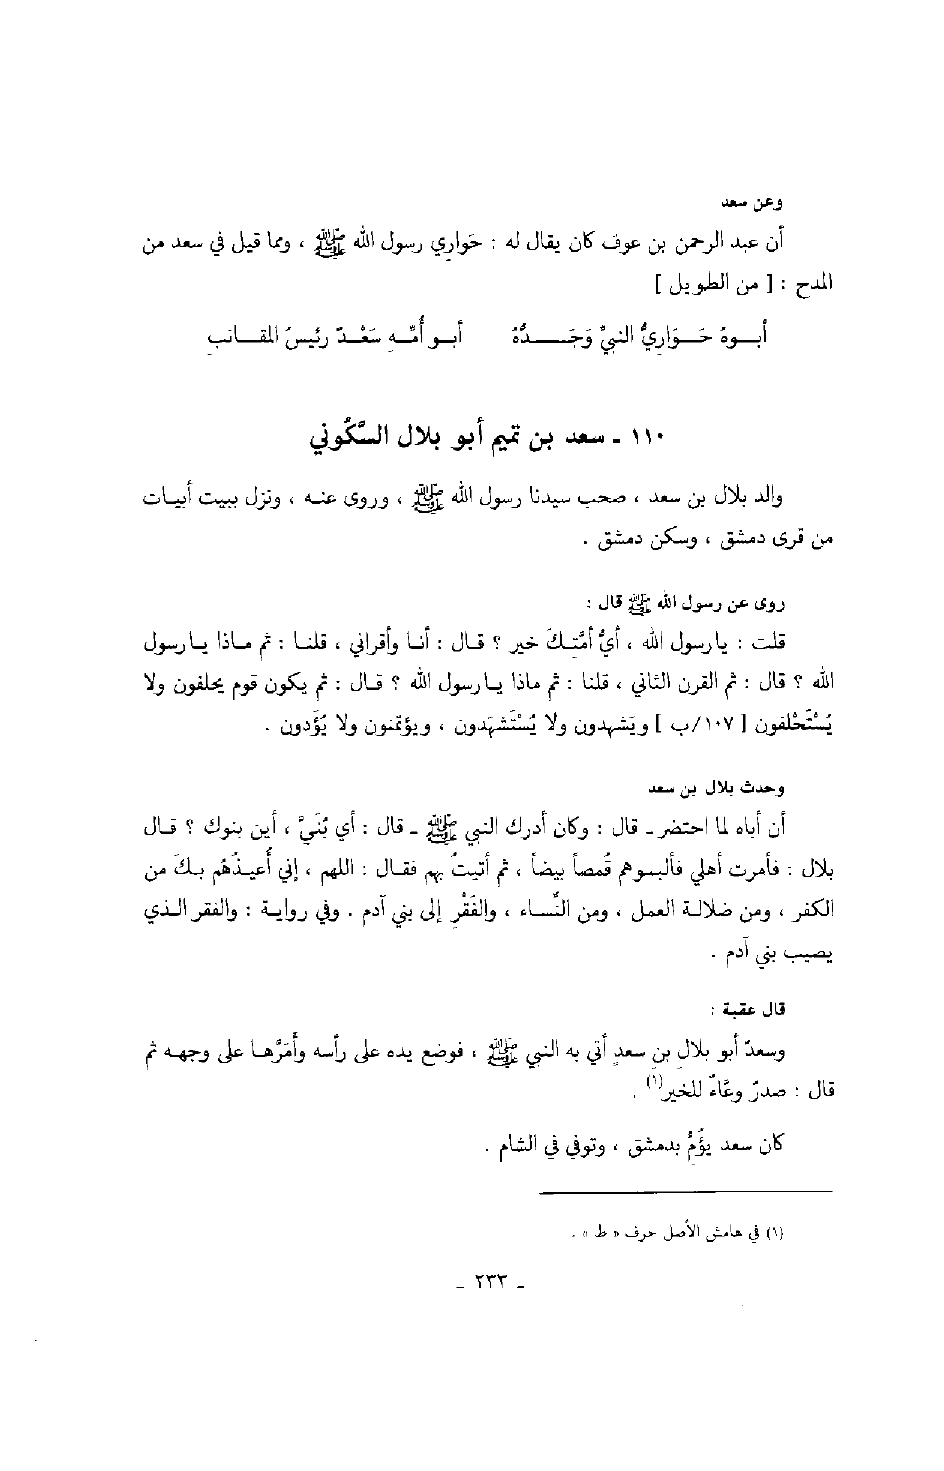 وعن سعد
أن عبد الرحمن بن عوف كان يقال له : حَواري رسول الله ﷺ ، ومما قيل في سعد من
المدح : [ من الطويل ]
أبـوهُ حَـوَاريُّ النبيِّ وَجَـدُّهُ أبـو أُمِّـهِ سَعْـدٌ رئيسُ المقـانبِ
١١٠ ـ سعد بن تميم أبو بلال السَّكُوني
والد بلال بن سعد ، صحب سيدنا رسول الله ﷺ ، وروى عنه ، ونزل ببيت أبيات
من قرى دمشق ، وسكن دمشق .
روى عن رسول الله ﷺ قال :
قلت : يارسول الله ، أيُّ أمَّتِكَ خير ؟ قال : أنا وأقراني ، قلنا : ثم ماذا يارسول
الله ؟ قال : ثم القرن الثاني ، قلنا : ثم ماذا يارسول الله ؟ قال : ثم يكون قوم يحلفون ولا
يُسْتَحْلفون [ ١٠٧/ب ] ويَشهدون ولا يُسْتَشهَدون ، ويؤتمنون ولا يُؤَدون .
وحدث بلال بن سعد
أن أباه لما احتضر ـ قال : وكان أدرك النبي ﷺ ـ قال : أي بُنَيَّ ، أين بنوك ؟ قال
بلال : فأمرت أهلي فألبسوهم قُمصاً بيضاً ، ثم أتيتُ بهم فقال : اللهم ، إني أُعيذُهُم بكَ من
الكفر ، ومن ضلالة العمل ، ومن النِّساء ، والفَقْرِ إلى بني آدم . وفي رواية : والفقر الذي
يصيب بني آدم .
قال عقبة :
وسعدٌ أبو بلالِ بنِ سعدٍ أتي به النبي ﷺ ، فوضع يده على رأسه وأمَرَّها على وجهه ثم
قال : صدرٌ وعَّاءٌ للخير(١) .
كان سعد يؤُمُّ بدمشق ، وتوفي في الشام .
(١) في هامش الأصل حرف « ط » .
ـ ٢٣٣ ـ